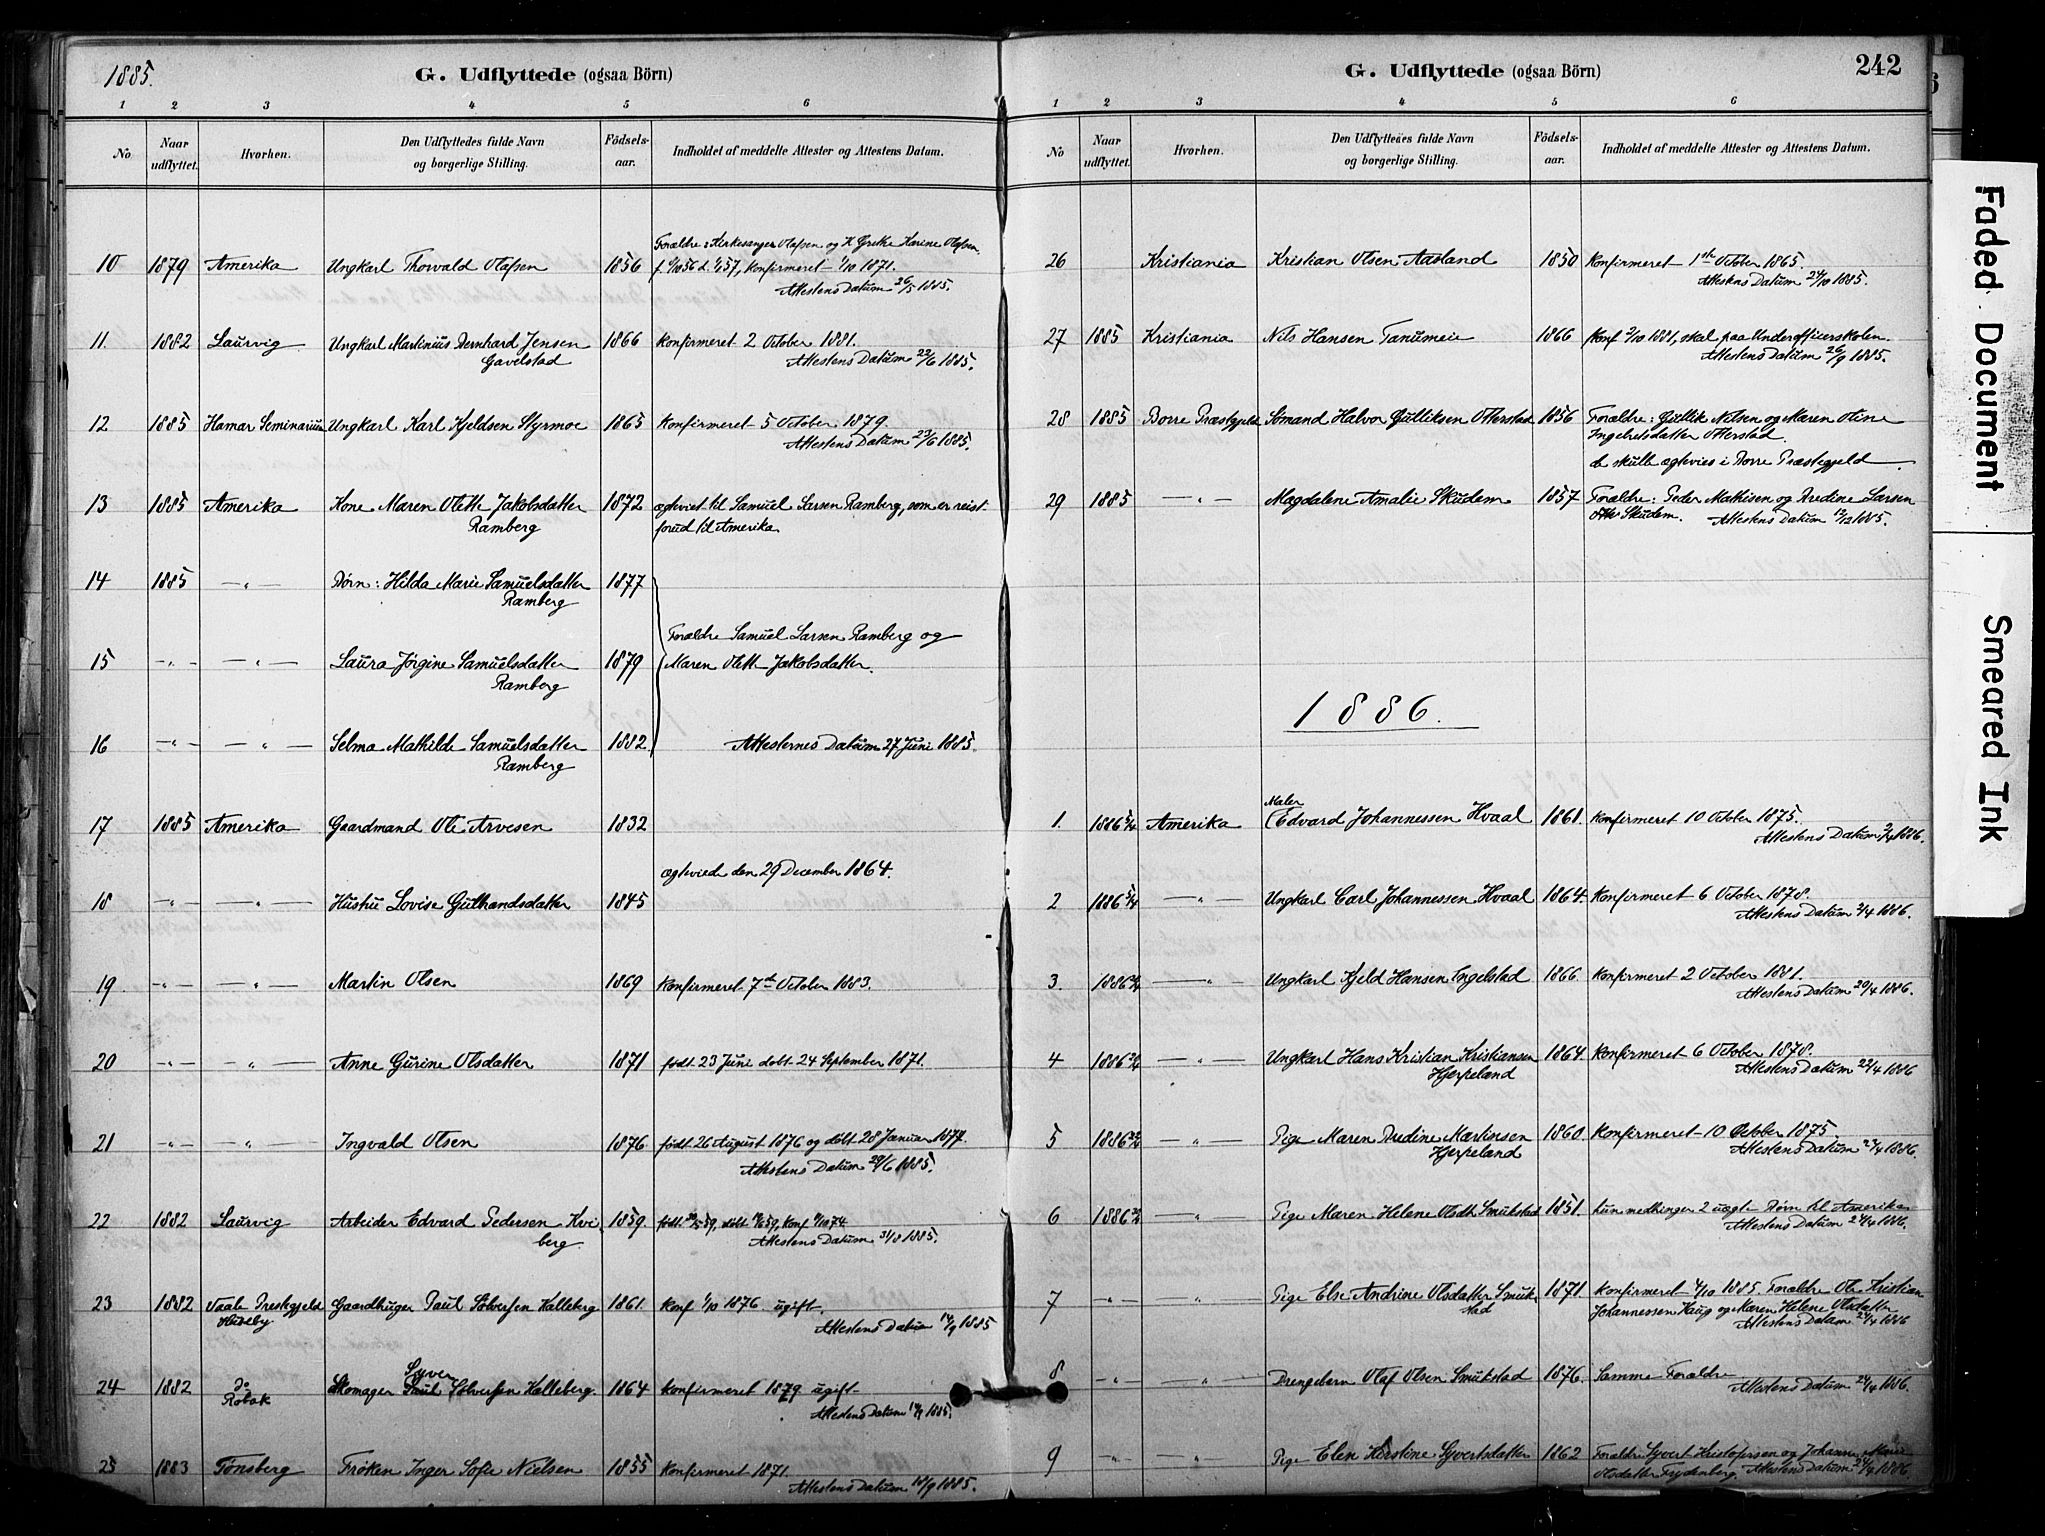 1885.
G. Udflyttede (ogsaa Börn)
1 2 3 4 5 6
No
Naar udflyttet.
Hvorhen.
Den Udflyttedes fulde Navn og borgerlige Stilling.
Födsels-aar.
Indholdet af meddelte Attester og Attestens Datum.
Forældre: Kirkesanger Olafsen og H. Grethe Karine Olafsen,
10 1879 Amerika Ungkarl Thorvald Olafsen 1856 konfirmeret 1/10 1871.
Attestens Datum 26/5 1885.
11. 1882 Laurvig Ungkarl Martinius Bernhard Jensen 1866 konfirmeret 2 October 1881.
Gavelstad Attestens Datum 22/6 1885.
12 1885 Hamar Seminarium Ungkarl Karl Kjeldsen Styrmoe 1865 Konfirmeret 5 October 1879.
Attestens Datum 23/6 1885.
13 1885 Amerika Kone Maren Olette Jakobsdatter 1872 ægteviet til Samuel Larsen Ramberg, som er reist
Ramberg forud til Amerika.
14 1885 —"— Börn: Hilda Marie Samuelsdatter 1877
Ramberg
Forældre Samuel Larsen Ramberg og
15 —"— —"— Laura Jörgine Samuelsdatter 1879 Maren Olette Jakobsdatter.
Ramberg
16 —"— —"— Selma Mathilde Samuelsdatter 1882 Attesternes Datum 27 Juni 1885.
Ramberg
17 1885 Amerika Gaardmand Ole Arvesen 1832
ægteviede den 29 December 1864.
18 —"— —"— Hustru Lovise Guthandsdatter 1845
19 —"— —"— Martin Olsen 1869 Konfirmeret 7de October 1883.
20 —"— —"— Anne Gurine Olsdatter 1871 födt 23 Juni döbt 24 September 1871.
21 —"— —"— Ingvald Olsen 1876 födt 26 August 1876 og döbt 28 Januar 1877.
Attestens Datum 29/6 1885.
22 1882 Laurvig Arbeider Edvard Pedersen Kvi 1859
berg. Attestens Datum 31/8 1885.
23 1882 Vaale Prestegjeld Gaardbruger Paul Sölversen Halleberg 1861. Konf 1/10 1876. ugift.
Attestens Datum 14/9 1885
Syver
24 1882 Do Skomager Paul Sölversen Halleberg. 1864 Konfirmeret 1879 ugift
Attestens Datum 14/9 1885.
25 1883 Tönsberg Fröken Inger Sofie Nielsen 1855 Konfirmeret 1871.
Attestens Datum 14/9 1885.
G. Udflyttede (ogsaa Börn)
242
1 2 3 4 5 6
No
Naar udflyttet.
Hvorhen.
Den Udflyttedes fulde Navn og borgerlige Stilling.
Födsels-aar.
Indholdet af meddelte Attester og Attestens Datum.
26 Kristiania Kristian Olsen Aasland 1850 Konfirmeret 1ste October 1865.
Attestens Datum 24/10 1885.
27 1885 Kristiania Nils Hansen Tanumeie 1866 Konf 2/10 1881, skal paa Underofficerskolen.
Attestens Datum 26/9 1885.
28 1885 Borre Præstegjeld Sömand Halvor Gulliksen Otterstad 1856 Forældre: Gullik Nilsen og Maren Oline
Ingebretsdatter Otterstad.
de skulle ægtevies i Borre Præstegjeld
29 1885 —"— Magdalene Amalie Skudem 1857 Forældre: Peder Mathisen og Bredine Larsen
Skudem. Attestens Datum 12/12 1885.
1886.
Maler
1. 1886 5/4 Amerika Edvard Johannessen Hvaal 1861. Konfirmeret 10 October 1875.
Attestens Datum 2/4 1886.
2 1886 5/4 —"— Ungkarl Carl Johannessen Hvaal 1864. Konfirmeret 6 October 1878.
Attestens Datum 2/4 1886.
3 1886 —"— Ungkarl Kjeld Hansen Ingelstad 1866. Konfirmeret 2 October 1881.
Attestens Datum 20/4 1886.
4 1886 —"— Ungkarl Hans Kristian Kristiansen 1864. Konfirmeret 6 October 1878.
Hjerpeland Attestens Datum 22/4 1886
5 1886 —"— Pige Maren Bredine Martinsen 1860. Konfirmeret 10 October 1875.
Hjerpeland Attestens Datum 22/4 1886.
6 1886 —"— Pige Maren Helene Olsdtr Smukstad 1851. hun medbringer 2 uægte Börn til Amerika
Attestens Datum 24/4 1886.
7 —"— —"— Pige Else Andrine Olsdatter Smuk 1871. Konfirmeret 4/10 1885. Forældre Ole Kristian
stad Johannessen Haug og Maren Helene Olsdatter
Attestens Datum 24/4 1886
8 —"— —"— Drengebarn Olaf Olsen Smukstad 1876. Samme Forældre
Attestens Datum 24/4 1886.
9 —"— —"— Pige Elen Kirstine Syvertsdatter 1862 Forældre Syvert Kristofersen og Johanne Marie
Olsdatter Frydenberg. Attestens Datum 1886.
Faded Document
Smeared Ink